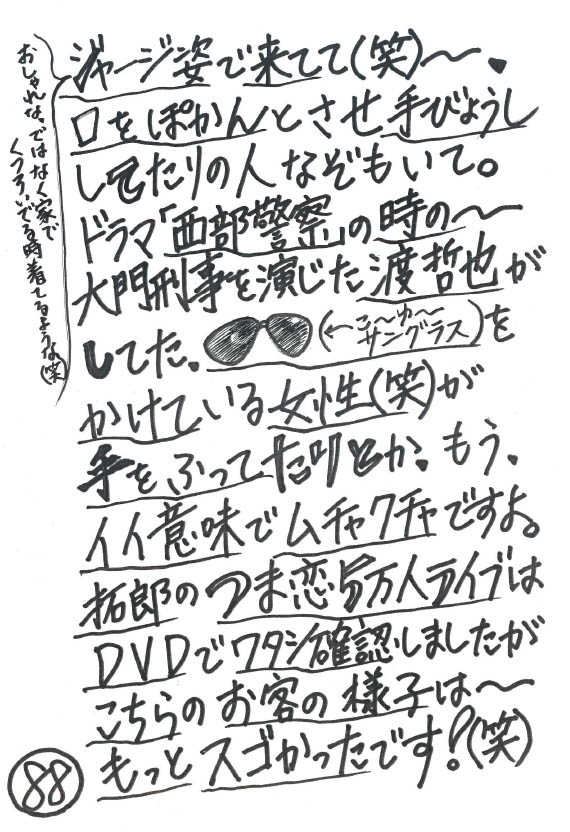 ジャージ姿で来てて(笑)〜、
おしゃれな、ではなく家で
くつろいでる時着てるような(笑)
口をぽかんとさせ手びょうし
してたりの人なぞもいて。
ドラマ「西部警察」の時の〜
大門刑事を演じた渡哲也が
してた、(←こ〜ゆ〜サングラス)を
かけている女性(笑)が
手をふってたりとか、もう、
イイ意味でムチャクチャですよ。
拓郎のつま恋5万人ライブは
DVDでワタシ確認しましたが
こちらのお客の様子は〜
もっとスゴかったです!(笑)
88